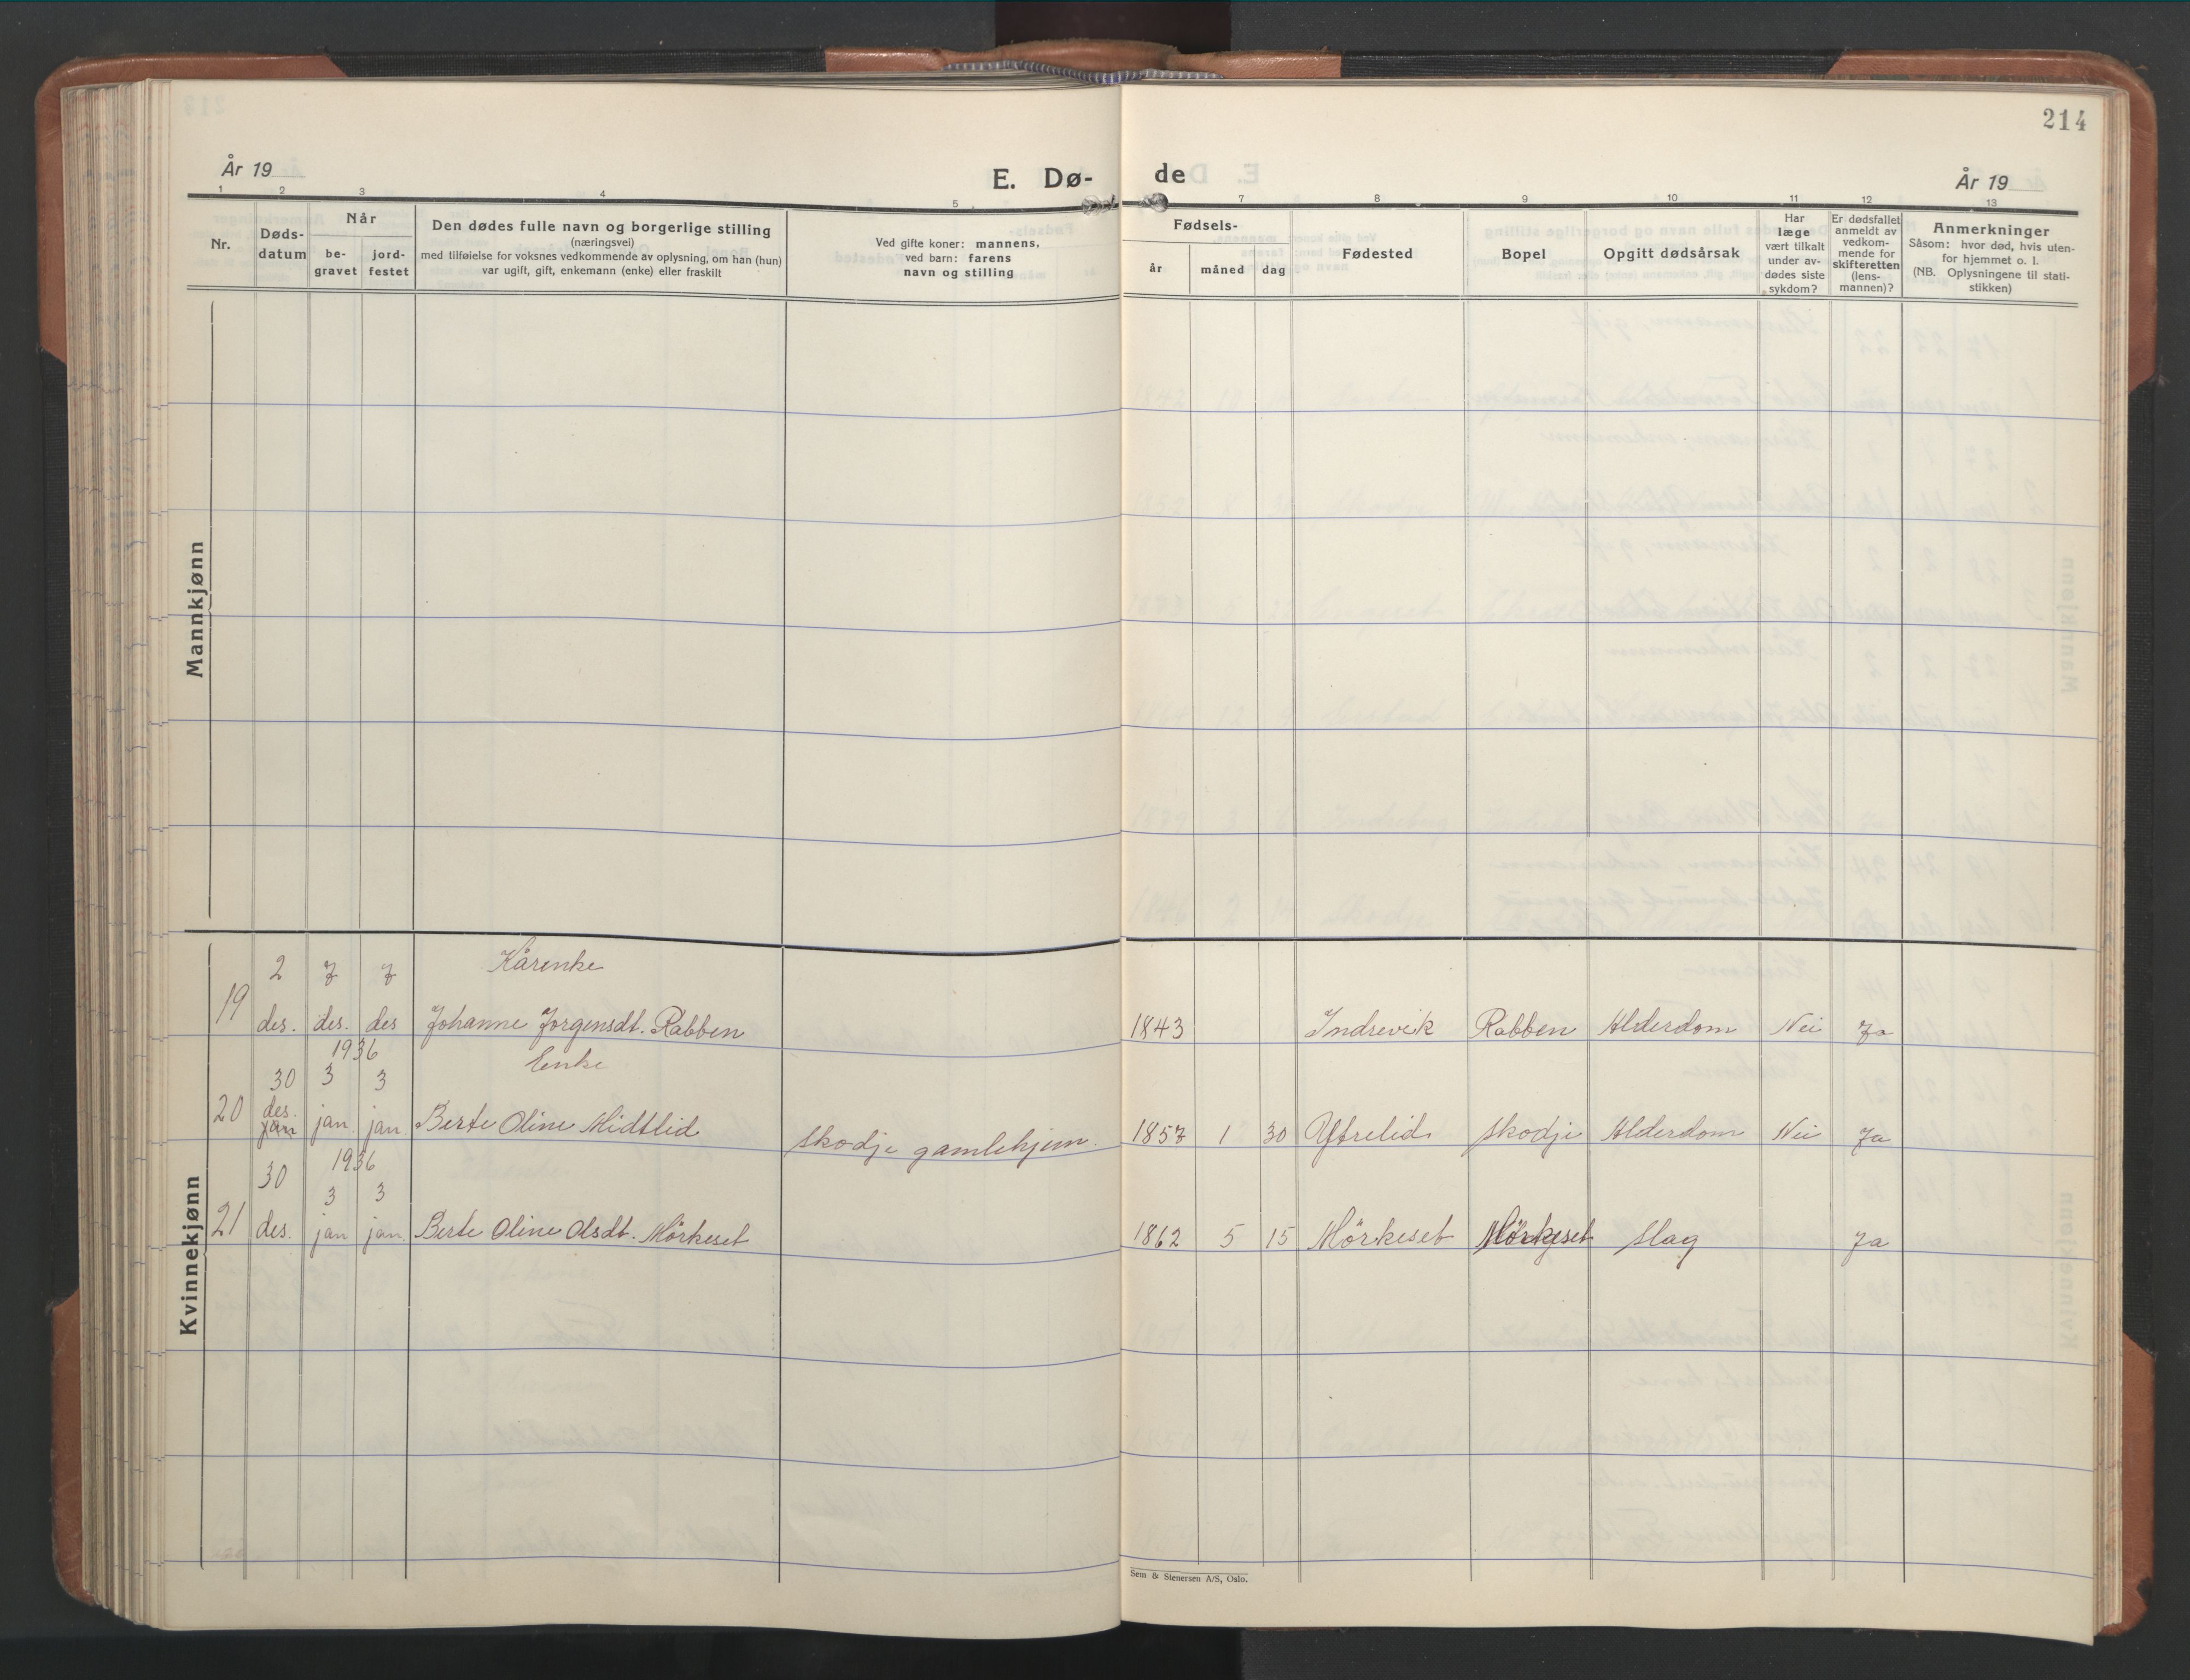 214
År 19
E. Dø-
de
År 19
1 2 3 4 5 7 8 9 10 11 12 13
Nr.
Døds-
datum
Når
be-
gravet
jord-
festet
Den dødes fulle navn og borgerlige stilling
(næringsvei)
med tilføielse for voksnes vedkommende av oplysning, om han (hun)
var ugift, gift, enkemann (enke) eller fraskilt
Ved gifte koner: mannens,
ved barn: farens
navn og stilling
Fødsels-
år
måned
dag
Fødested
Bopel
Opgitt dødsårsak
Har
læge
vært tilkalt
under av-
dødes siste
sykdom?
Er dødsfallet
anmeldt av
vedkom-
mende for
skifteretten
(lens-
mannen)?
Anmerkninger
Såsom: hvor død, hvis uten-
for hjemmet o. l.
(NB. Oplysningene til stati-
stikken)
Mannkjønn
Kvinnekjønn
2 7 7 Kårenke
19 des. des. des Johanne Jørgensdt. Rabben 1843 Indrevik Rabben Alderdom Nei Ja
1936
30 3 3 Enke
20 des. jan jan. jan Berte Oline Midtlid Skodje gamlehjem. 1857 1 30 Ytrelid Skodje Alderdom Nei Ja
1936
30 3 3
21 des. jan jan. Berte Oline Olsdt. Mörkeset 1862 5 15 Mörkeset Mörkeset Slag Ja
Sem & Stenersen A/S, Oslo.